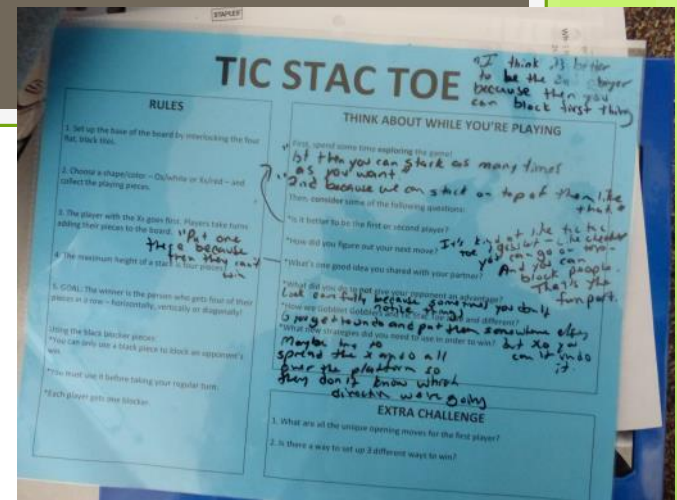 STAPLES
TIC STAC TOE
"I think it's better
to be the 2nd player
because then you
can block first thing
RULES
1. Set up the base of the board by interlocking the four
flat, black tiles.
2. Choose a shape/color – Os/white or Xs/red – and
collect the playing pieces.
3. The player with the Xs goes first. Players take turns
adding their pieces to the board.
"Put one
there because
then they can't
win
4. The maximum height of a stack is four pieces.
5. GOAL: The winner is the person who gets four of their
pieces in a row – horizontally, vertically or diagonally!
Using the black blocker pieces:
*You can only use a black piece to block an opponent's
win.
*You must use it before taking your regular turn.
*Each player gets one blocker.
THINK ABOUT WHILE YOU'RE PLAYING
First, spend some time exploring the game!
1st then you can stack as many times
as you want"
"2nd because we can stack on top of them like
that"
Then, consider some of the following questions:
*Is it better to be the first or second player?
*How did you figure out your next move?
It's kind of like tic tac
toe
you can go on
And you can
block people.
That's the
fun part.
*What's one good idea you shared with your partner?
*What did you do to not give your opponent an advantage?
Look carefully because sometimes you don't
notice things
*What new strategies did you need to use in order to win?
and put them somewhere else,
but xo you
can't undo
it.
Maybe try to
spread the x and o all
over the platform so
they don't know which
direction we're going
EXTRA CHALLENGE
1. What are all the unique opening moves for the first player?
2. Is there a way to set up 3 different ways to win?